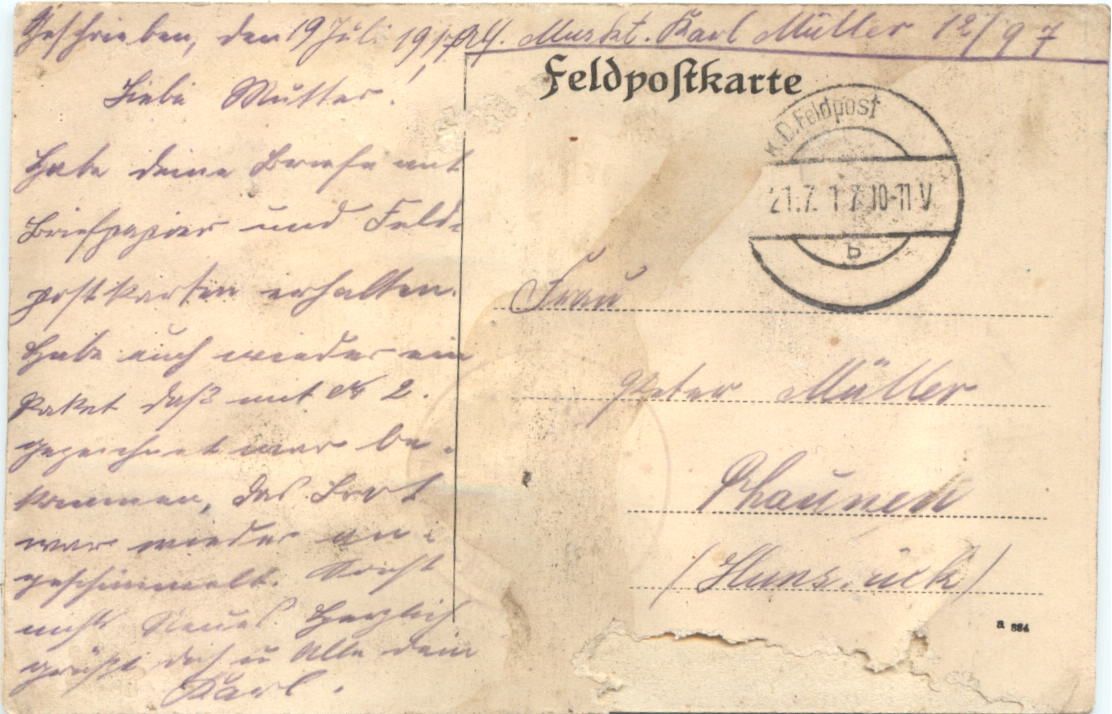 Geschrieben, den 19 Juli 1917.
Abs. Muskt. Karl Müller 12/97
Liebe Mutter!
Habe deine Briefe mit
Briefpapier und Feld-
postkarten erhalten.
Habe auch wieder ein
Paket daß mit № 2.
gezeichnet war be-
kommen, das Brot
war wieder an-
geschimmelt. Sonst
nichts Neues. Herzlich
grüßt dich u Alle dein
Karl.
Feldpostkarte
K.D. Feldpost
21.7.17 10-11 V
b
Frau
Peter Müller
Rhaunen
(Hunsrück)
a 884